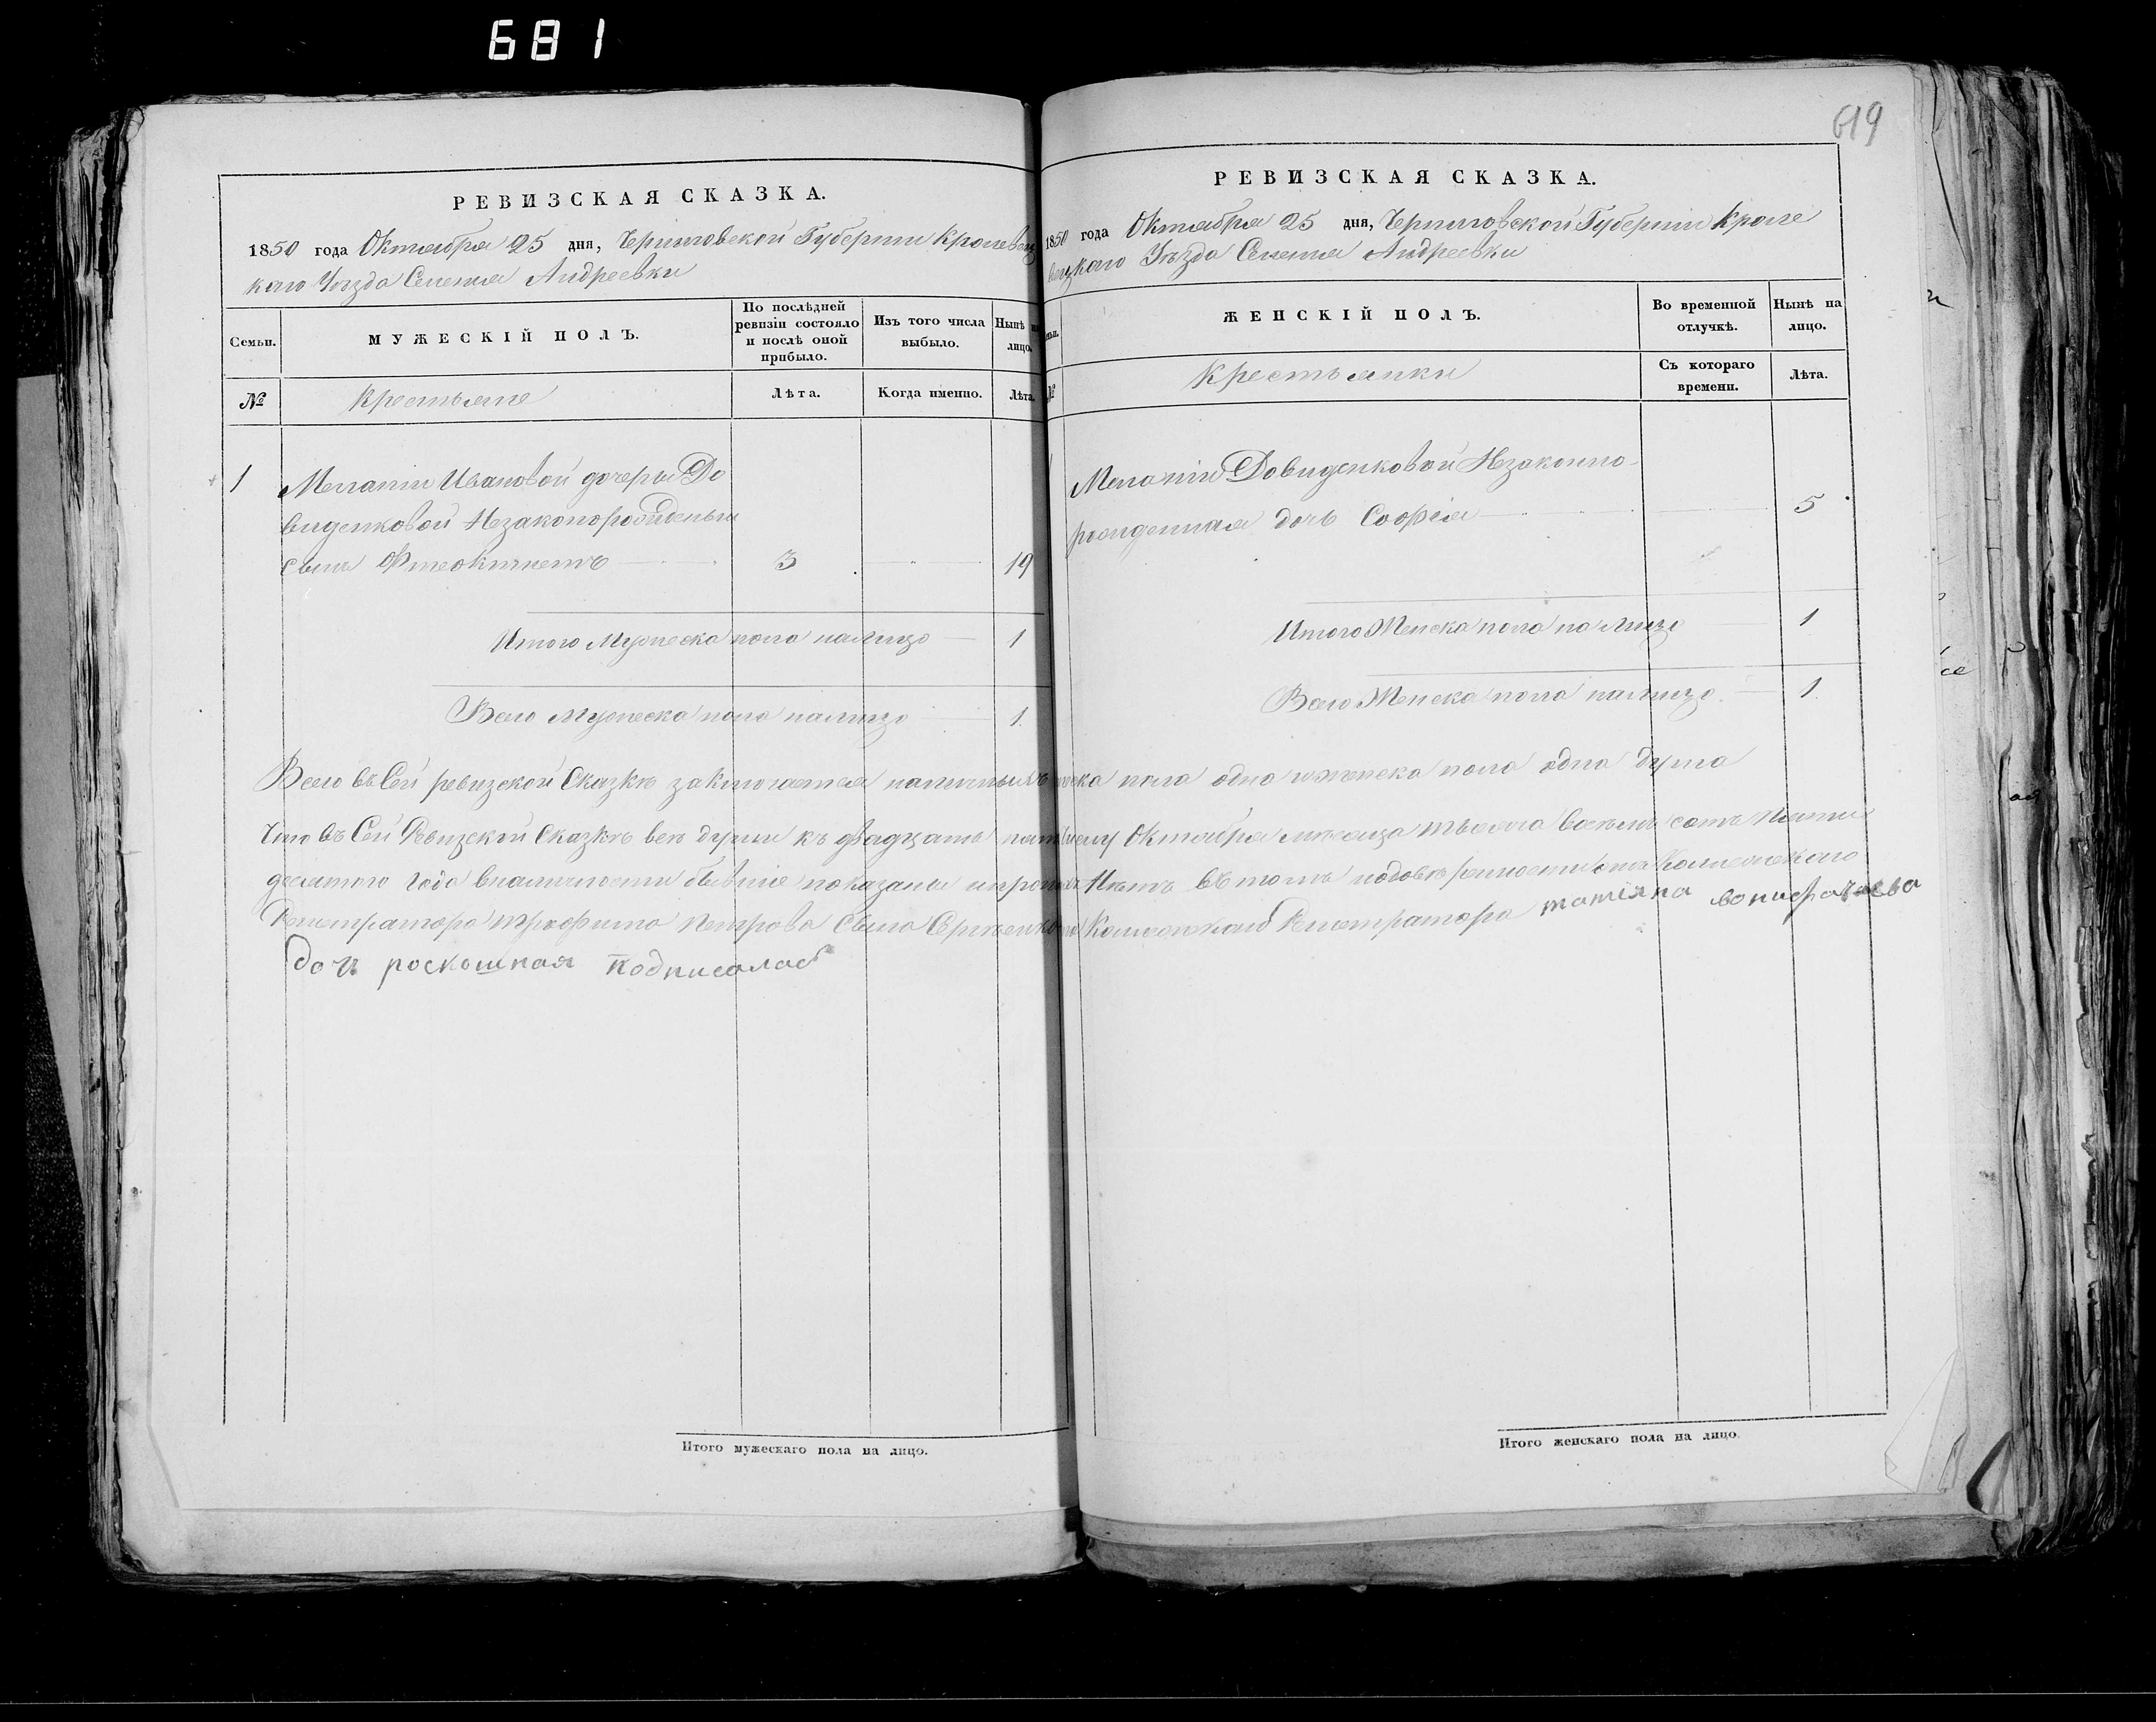 681
619
РЕВИЗСКАЯ СКАЗКА.
1850 года Октября 25 дня, Черниговской Губернии Кролевец
каго Уѣзда Селения Андреевки
Семьи.
МУЖЕСКІЙ ПОЛЪ.
По послѣдней ревизіи состояло и послѣ оной прибыло.
Изъ того числа выбыло.
Нынѣ на лицо.
№
Крестьяне
Лѣта.
Когда именно.
Лѣта.
1
Мелании Ивановой дочери До
виденковой Незаконорожденый
Сынъ Фтеоктистъ 3 19
Итого Мужеска пола налицо 1
Всего Мужеска пола налицо 1.
РЕВИЗСКАЯ СКАЗКА.
1850 года Октября 25 дня, Черниговской Губерніи Кроле
вецкаго Уѣзда Селения Андреевки
ЖЕНСКІЙ ПОЛЪ.
Во временной отлучкѣ.
Нынѣ на лицо.
№
Крестьянки
Съ котораго времени.
Лѣта.
Меланіи Довиденковой Незаконно-
рожденная дочь Софія 5
Итого Женска пола на лицо 1
Всего Женска пола налицо. 1
Всего въ Сей ревизской Сказкѣ заключается наличныхъ пола одна и женска пола одна душа
Что въ Сей Ревизской Сказкѣ всѣ души къ двадцать пятому Октября мѣсяца тысяча восемь сотъ Пяти
десятого года вналичности бывшие показаны и Нѣтъ въ томъ Колежскаго
Регистратора Трофима Петрова Сына Колежскаго Регистратора татіяна
дочь роскошная подписалас
Итого мужескаго пола на лицо.
Итого женскаго пола на лицо.